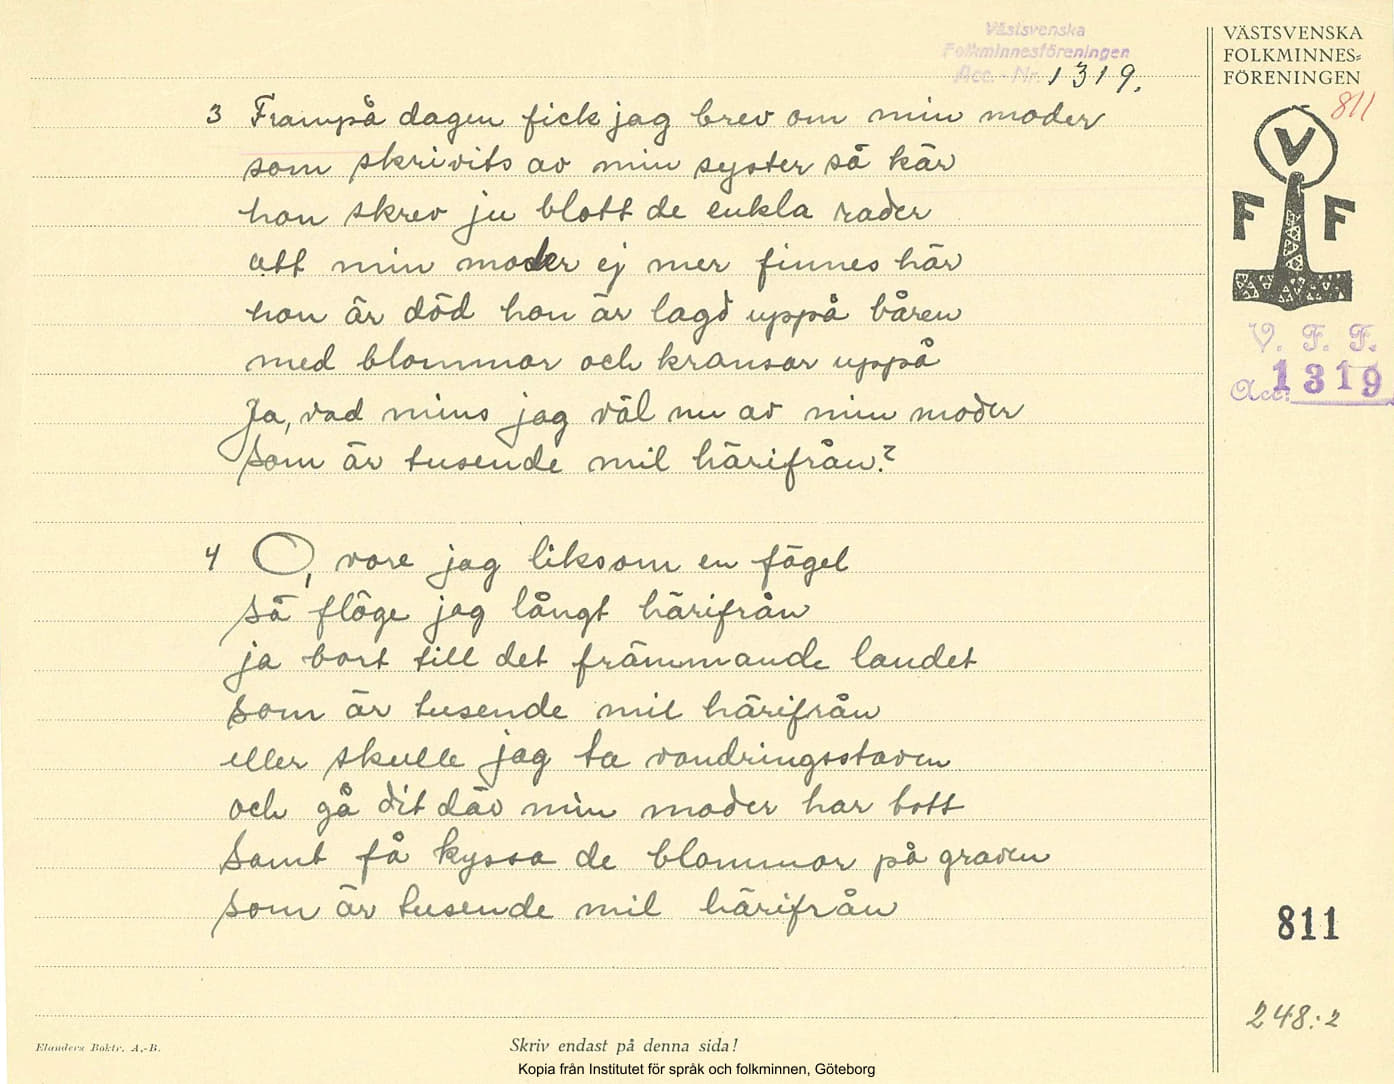 Västsvenska
Folkminnesföreningen
Acc. - Nr. 1319.
VÄSTSVENSKA
FOLKMINNES=
FÖRENINGEN
811
V
F F
V. F. F.
Acc: 1319
3 Frampå dagen fick jag brev om min moder
som skrivits av min syster så kär
hon skrev ju blott de enkla rader
att min moder ej mer finnes här
hon är död hon är lagd uppå båren
med blommor och kransar uppå
Ja, vad mins jag väl nu av min moder
som är tusende mil härifrån?
4 O, vore jag liksom en fågel
så flöge jag långt härifrån
ja bort till det främmande landet
som är tusende mil härifrån
eller skulle jag ta vandringsstaven
och gå dit där min moder har bott
samt få kyssa de blommor på graven
som är tusende mil härifrån
811
248:2
Elanders Boktr. A.-B.
Skriv endast på denna sida!
Kopia från Institutet för språk och folkminnen, Göteborg